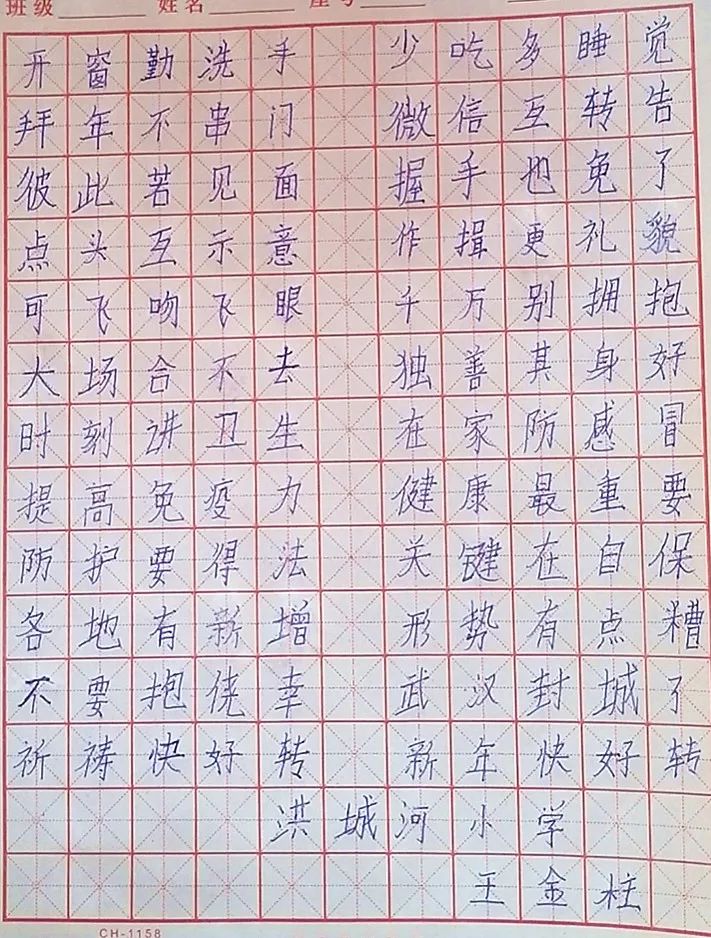 班级 姓名
开窗勤洗手 少吃多睡觉
拜年不串门 微信互转告
彼此若见面 握手也免了
点头互示意 作揖更礼貌
可飞吻飞眼 千万别拥抱
大场合不去 独善其身好
时刻讲卫生 在家防感冒
提高免疫力 健康最重要
防护要得法 关键在自保
各地有新增 形势有点糟
不要抱侥幸 武汉封城了
祈祷快好转 新年快好转
洪城河小学
王金柱
CH-1158